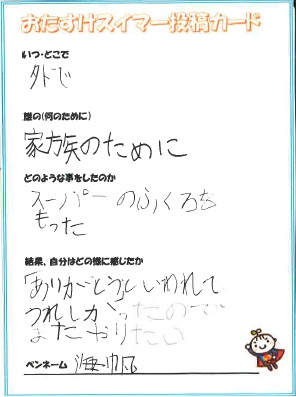 おたすけスイマー投稿カード
いつ・どこで
外で
誰の(何のために)
家族のために
どのような事をしたのか
スーパーのふくろを
もった
結果、自分はどの様に感じたか
「ありがとう」といわれて
うれしかったので
またやりたい
ペンネーム 海帆